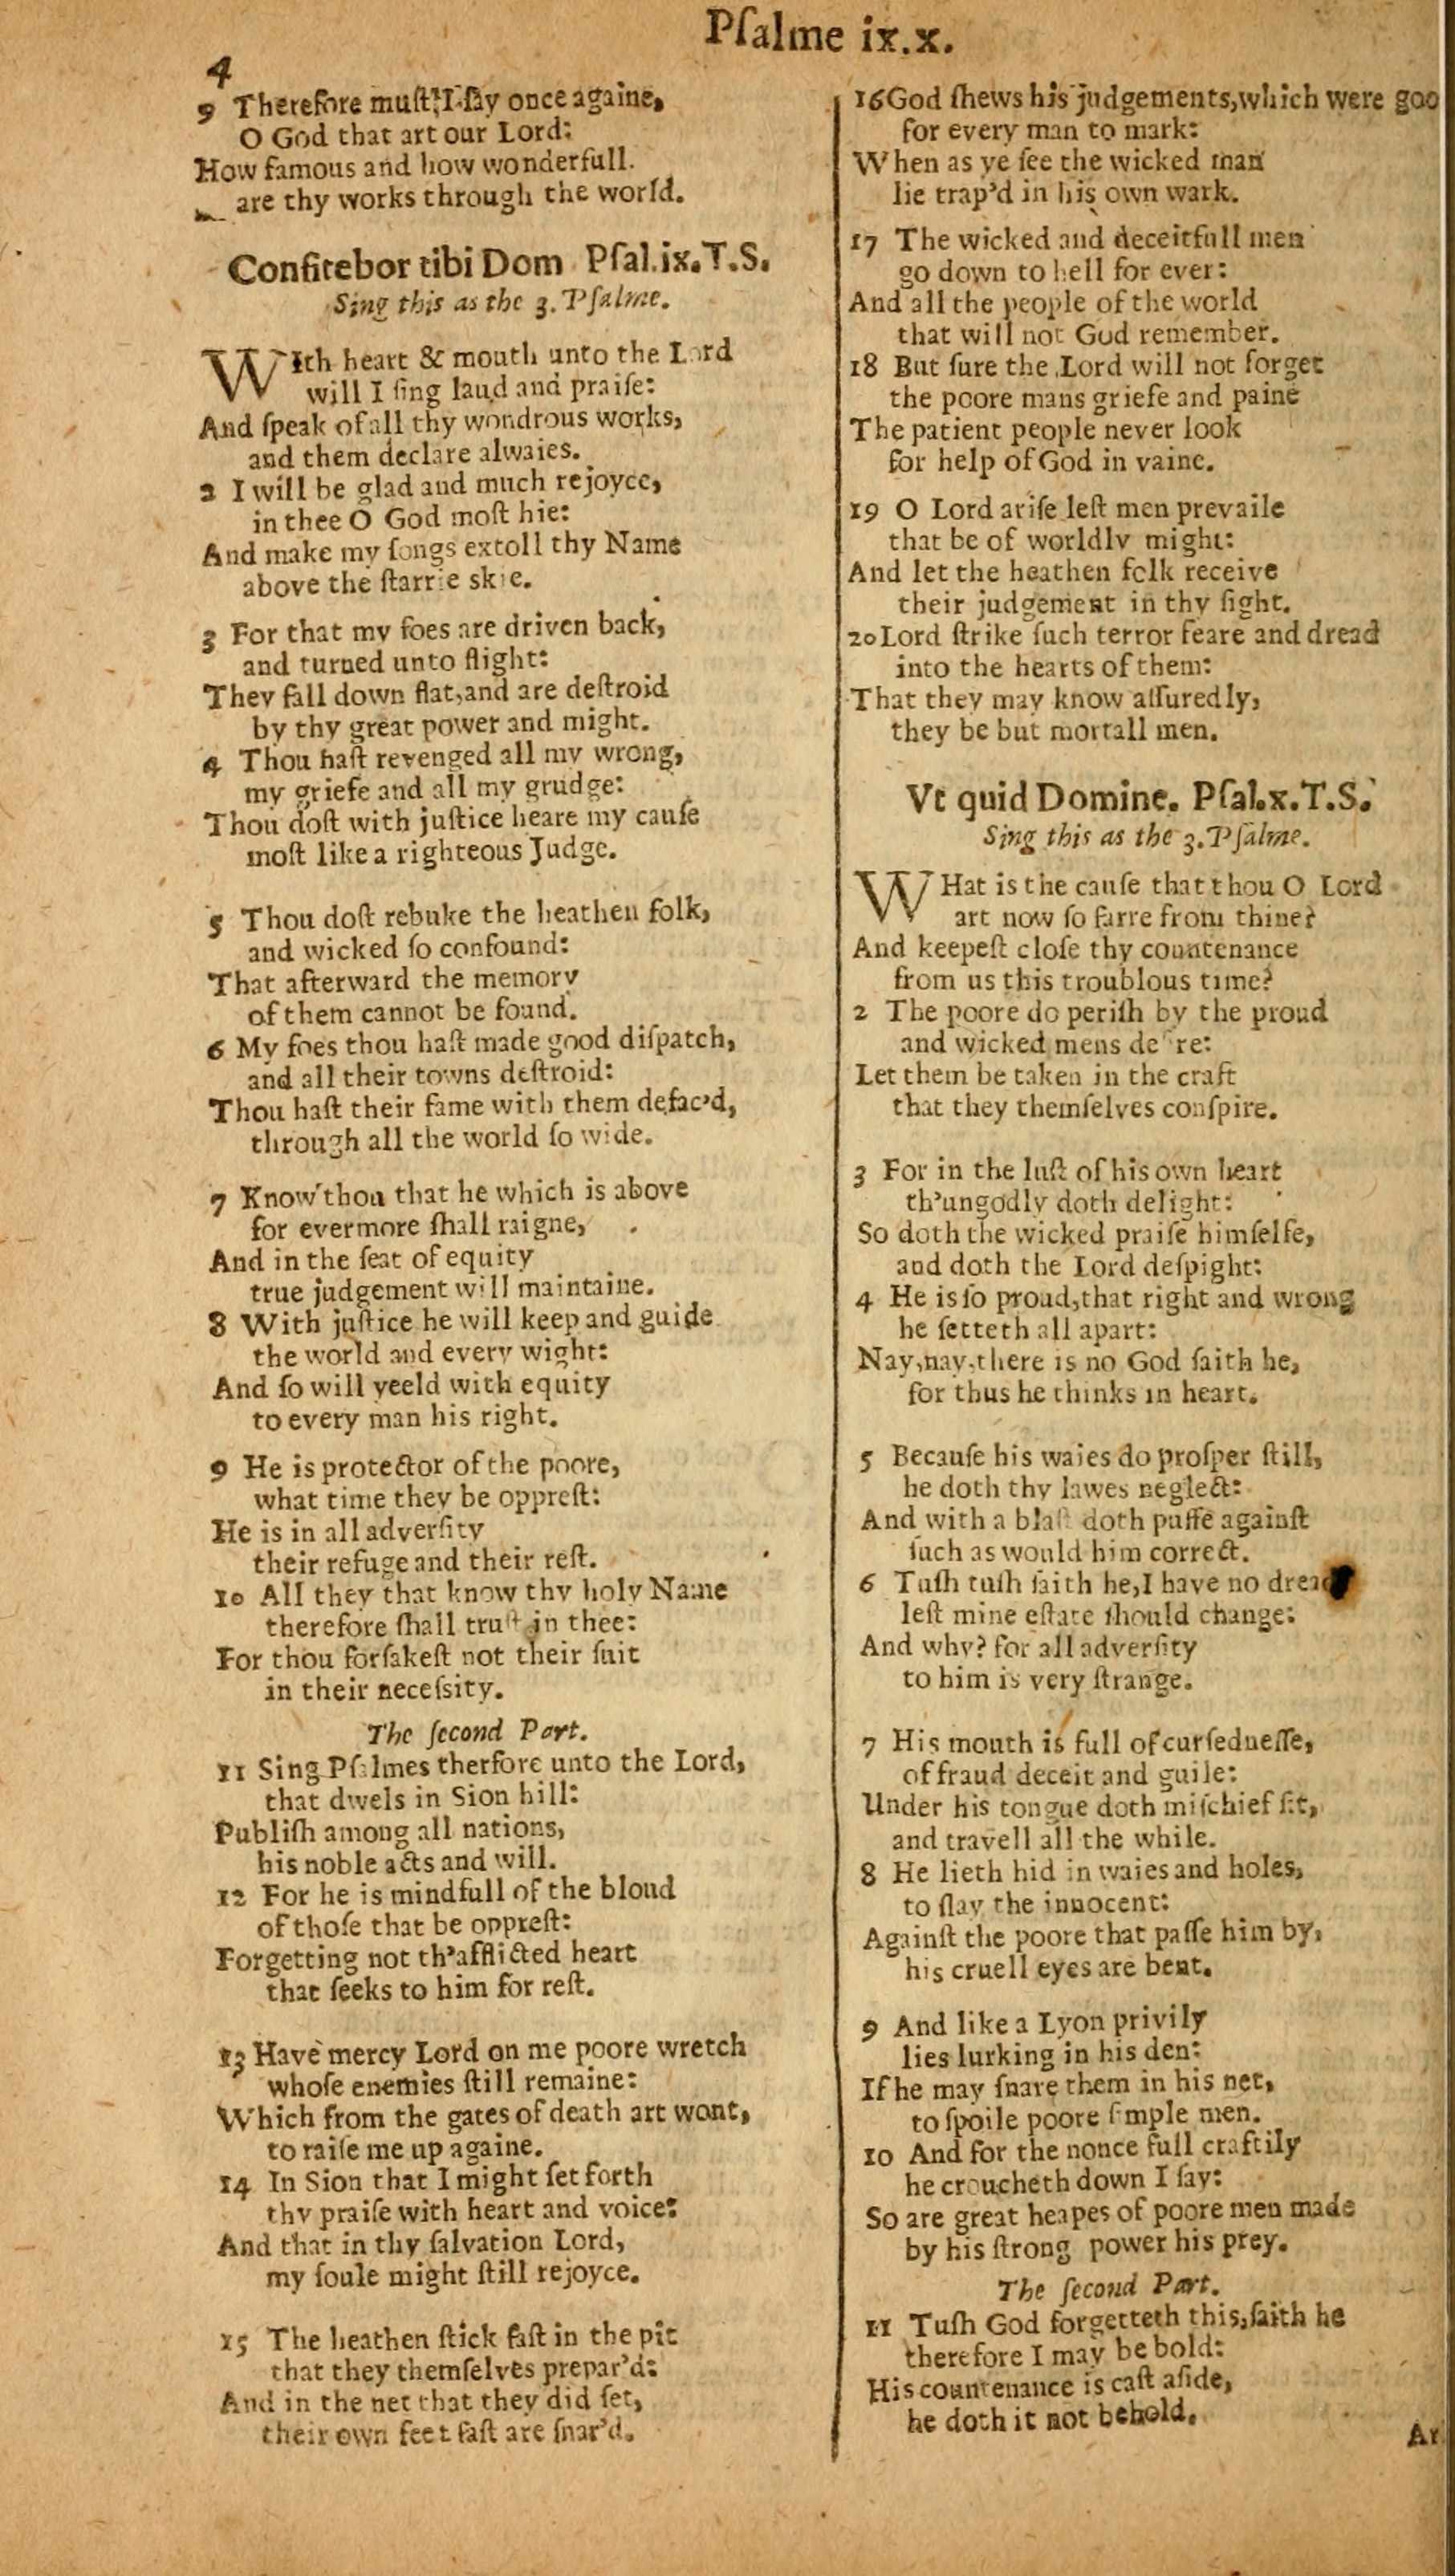 Pſalme ix.x.
4
9 Therefore muſt I ſay once againe,
O God that art our Lord:
How famous and how wonderfull.
are thy works through the world.
Confitebor tibi Dom Pſal.ix.T.S.
Sing this as the 3. Pſalme.
WIth heart & mouth unto the Lord
will I ſing laud and praiſe:
And ſpeak of all thy wondrous works,
and them declare alwaies.
2 I will be glad and much rejoyce,
in thee O God moſt hie:
And make my ſongs extoll thy Name
above the ſtarrie skie.
3 For that my foes are driven back,
and turned unto flight:
They fall down flat, and are deſtroid
by thy great power and might.
4 Thou haſt revenged all my wrong,
my griefe and all my grudge:
Thou doſt with juſtice heare my cauſe
moſt like a righteous Judge.
5 Thou doſt rebuke the heathen folk,
and wicked ſo confound:
That afterward the memory
of them cannot be found.
6 My foes thou haſt made good diſpatch,
and all their towns deſtroid:
Thou haſt their fame with them defac'd,
through all the world ſo wide.
7 Know thou that he which is above
for evermore ſhall raigne,
And in the ſeat of equity
true judgement will maintaine.
8 With juſtice he will keep and guide
the world and every wight:
And ſo will yeeld with equity
to every man his right.
9 He is protector of the poore,
what time they be oppreſt:
He is in all adverſity
their refuge and their reſt.
10 All they that know thy holy Name
therefore ſhall truſt in thee:
For thou forſakeſt not their ſuit
in their neceſsity.
The ſecond Part.
11 Sing Pſalmes therfore unto the Lord,
that dwels in Sion hill:
Publiſh among all nations,
his noble acts and will.
12 For he is mindfull of the bloud
of thoſe that be oppreſt:
Forgetting not th'afflicted heart
that ſeeks to him for reſt.
13 Have mercy Lord on me poore wretch
whoſe enemies ſtill remaine:
Which from the gates of death art wont,
to raiſe me up againe.
14 In Sion that I might ſet forth
thy praiſe with heart and voice:
And that in thy ſalvation Lord,
my ſoule might ſtill rejoyce.
15 The heathen ſtick faſt in the pit
that they themſelves prepar'd:
And in the net that they did ſet,
their own feet faſt are ſnar'd.
16 God ſhews his judgements, which were goo
for every man to mark:
When as ye ſee the wicked man
lie trap'd in his own wark.
17 The wicked and deceitfull men
go down to hell for ever:
And all the people of the world
that will not God remember.
18 But ſure the Lord will not forget
the poore mans griefe and paine
The patient people never look
for help of God in vaine.
19 O Lord ariſe leſt men prevaile
that be of worldly might:
And let the heathen folk receive
their judgement in thy ſight.
20 Lord ſtrike ſuch terror feare and dread
into the hearts of them:
That they may know aſſuredly,
they be but mortall men.
Vt quid Domine. Pſal.x.T.S.
Sing this as the 3. Pſalme.
WHat is the cauſe that thou O Lord
art now ſo farre from thine?
And keepeſt cloſe thy countenance
from us this troublous time?
2 The poore do periſh by the proud
and wicked mens de re:
Let them be taken in the craft
that they themſelves conſpire.
3 For in the luſt of his own heart
th'ungodly doth delight:
So doth the wicked praiſe himſelfe,
and doth the Lord deſpight:
4 He is ſo proud, that right and wrong
he ſetteth all apart:
Nay, nay, there is no God ſaith he,
for thus he thinks in heart.
5 Becauſe his waies do proſper ſtill,
he doth thy lawes neglect:
And with a blaſt doth puffe againſt
ſuch as would him correct.
6 Tuſh tuſh ſaith he, I have no dread
leſt mine eſtate ſhould change:
And why? for all adverſity
to him is very ſtrange.
7 His mouth is full of curſedneſſe,
of fraud deceit and guile:
Under his tongue doth miſchief ſit,
and travell all the while.
8 He lieth hid in waies and holes,
to ſlay the innocent:
Againſt the poore that paſſe him by,
his cruell eyes are bent.
9 And like a Lyon privily
lies lurking in his den:
If he may ſnare them in his net,
to ſpoile poore ſimple men.
10 And for the nonce full craftily
he croucheth down I ſay:
So are great heapes of poore men made
by his ſtrong power his prey.
The ſecond Part.
11 Tuſh God forgetteth this, ſaith he
therefore I may be bold:
His countenance is caſt aſide,
he doth it not behold.
Ar